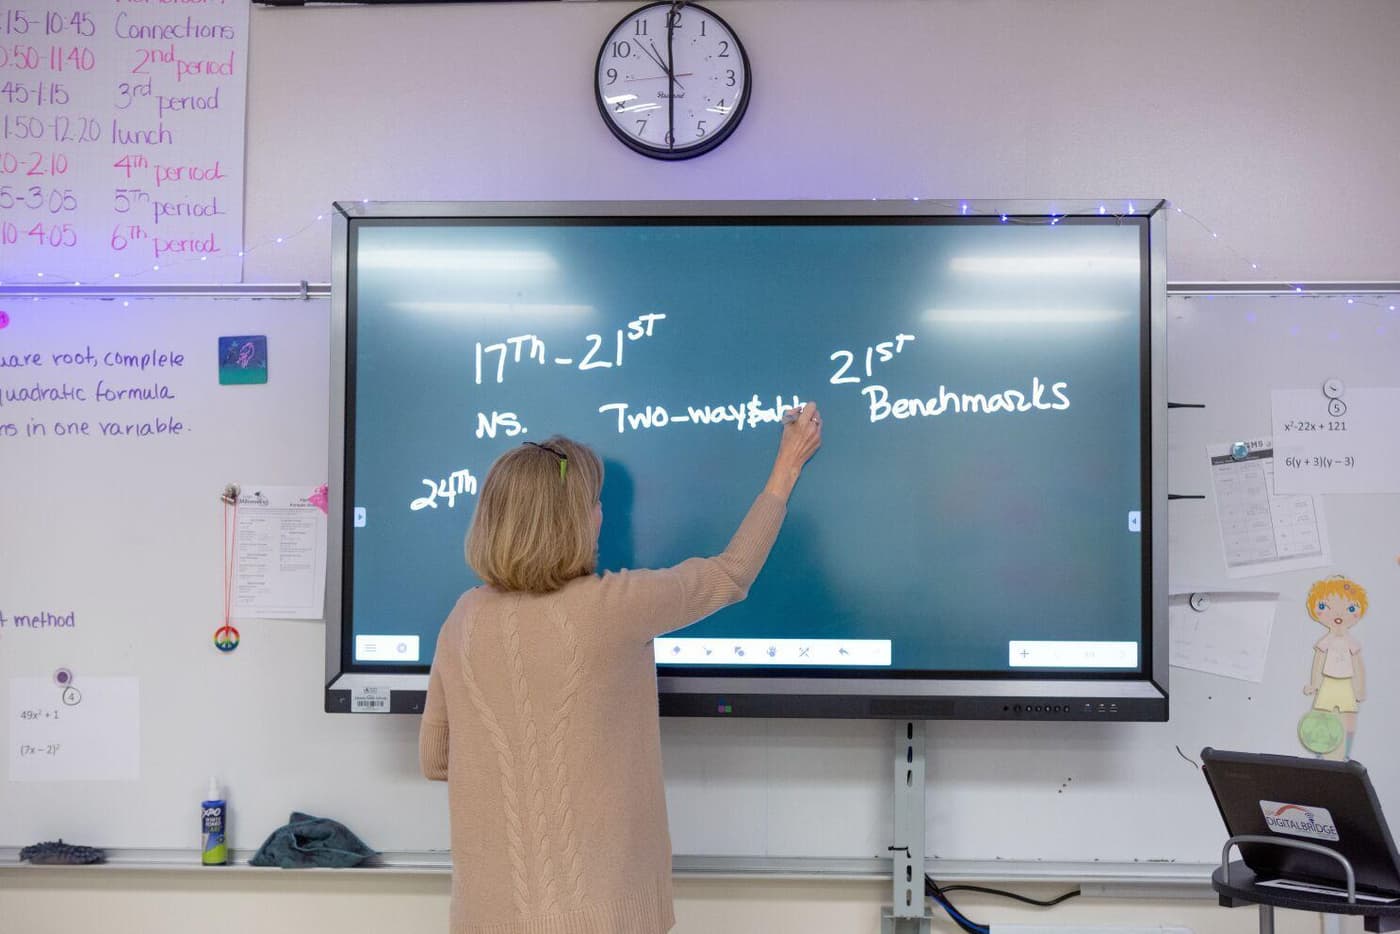 :15-10:45 Connections
0:50-11:40 2nd period
45-1:15 3rd period
1:50-12:20 lunch
0-2:10 4th period
5-3:05 5th period
10-4:05 6th period
uare root, complete
quadratic formula
ns in one variable.
t method
4
49x² + 1
(7x – 2)²
EXPO
11 12 1
10 2
9 3
8 4
7 6 5
17Th - 21ST
NS. Two-way
24Th
21ST
Benchmarks
5
x²-22x + 121
6(y + 3)(y – 3)
DIGITALBRIDGE